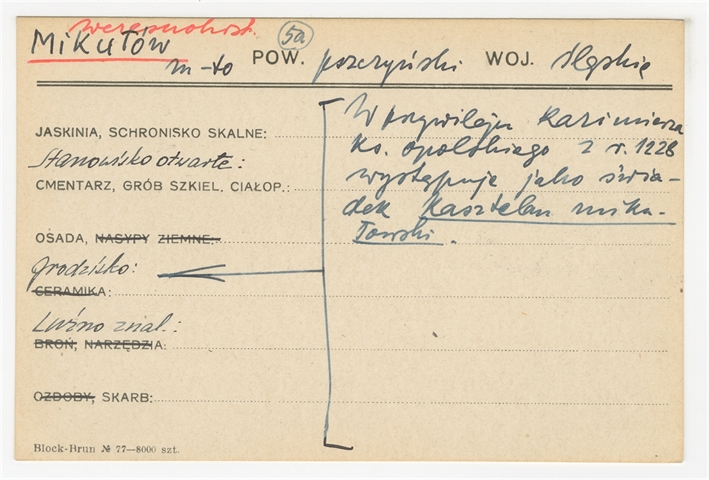 wczesnohist.
MIKUŁÓW 5a
m-to POW. pszczyński WOJ. śląskie
JASKINIA, SCHRONISKO SKALNE:
Stanowisko otwarte:
CMENTARZ, GRÓB SZKIEL. CIAŁOP.:
OSADA, NASYPY ZIEMNE:
Grodzisko:
CERAMIKA:
Luźno znal.:
BROŃ, NARZĘDZIA:
OZDOBY, SKARB:
W przywileju Kazimierza
ks. opolskiego z r. 1228
występuje jako świa-
dek Kasztelan miku-
łowski.
Block-Brun № 77—8000 szt.